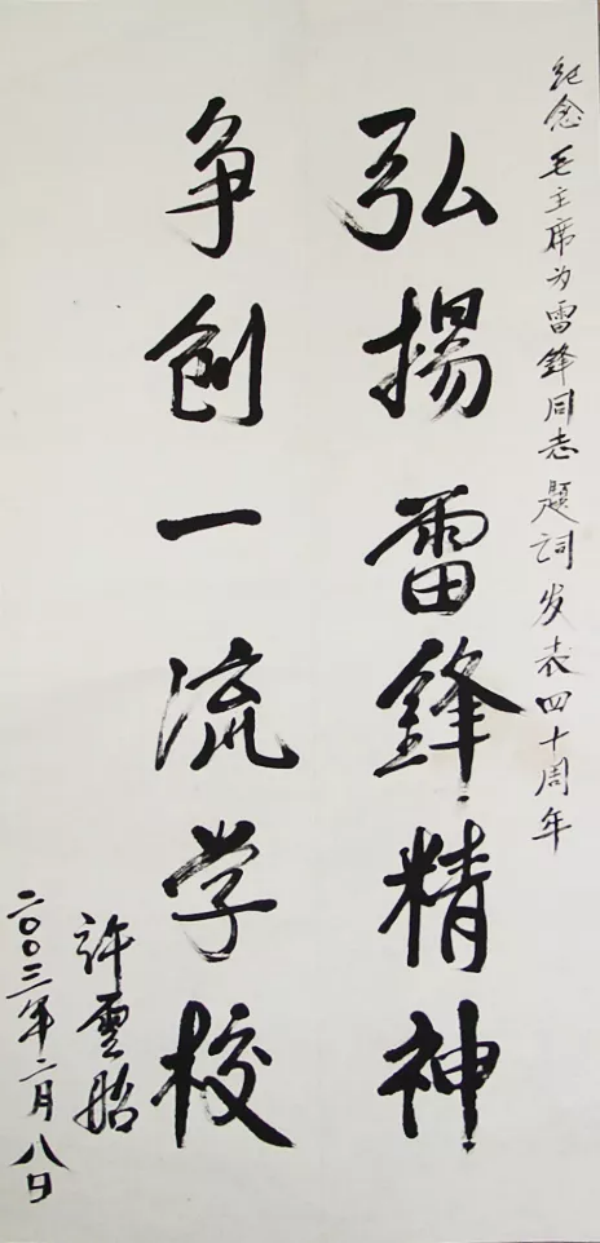 纪念毛主席为雷锋同志题词发表四十周年
弘揚雷鋒精神
争创一流学校
許雲昭
二〇〇三年二月八日